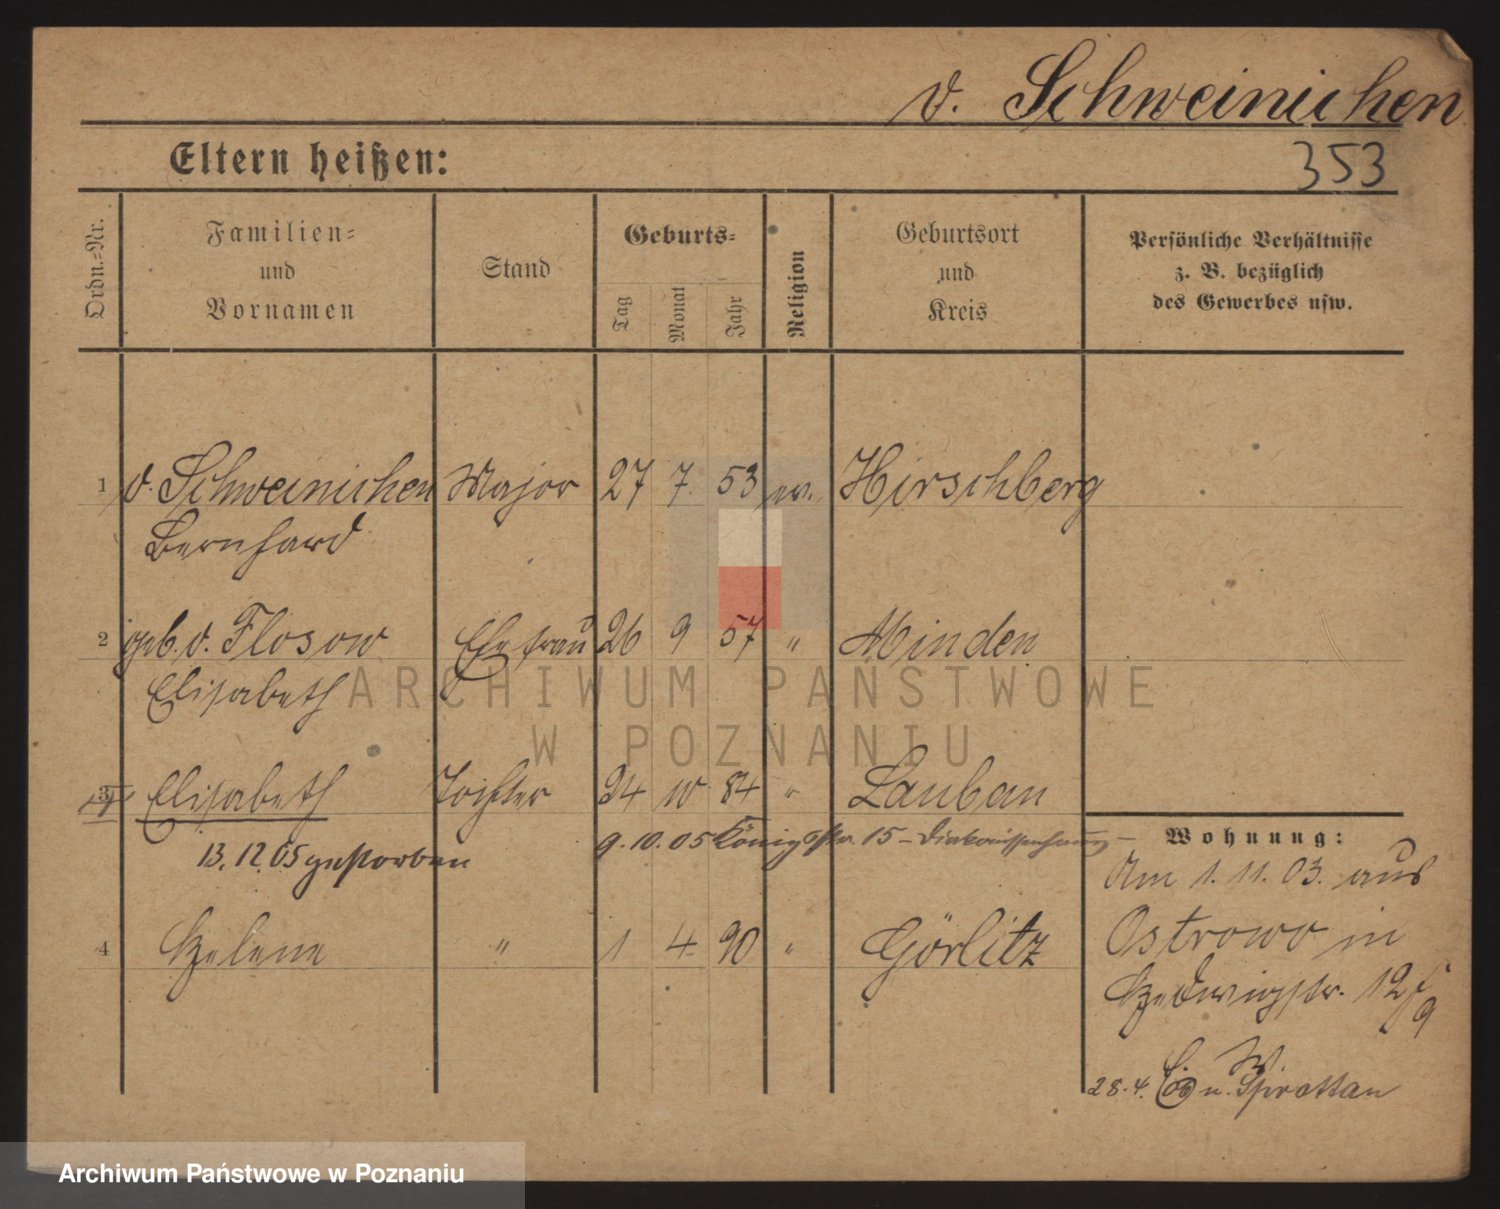 v. Schweinichen
Eltern heißen:
353
Ordn.-Nr.
Familien-
und
Vornamen
Stand
Geburts-
Tag
Monat
Jahr
Religion
Geburtsort
und
Kreis
Persönliche Verhältnisse
z. B. bezüglich
des Gewerbes usw.
1 v. Schweinichen Major 27 7. 53 ev. Hirschberg
Bernhard
2 geb. v. Flosow Ehefrau 26 9 57 " Minden
Elisabeth
3 Elisabeth Tochter 24 10 84 " Lauban
9.10.05 Königstr. 15 –
13.12.05 gestorben
4 Helene " 1 4 90 " Görlitz
Wohnung:
Am 1. 11. 03. aus
Ostrowo in
Hedwigstr. 12
28.4. n.
ARCHIWUM PAŃSTWOWE
W POZNANIU
Archiwum Państwowe w Poznaniu